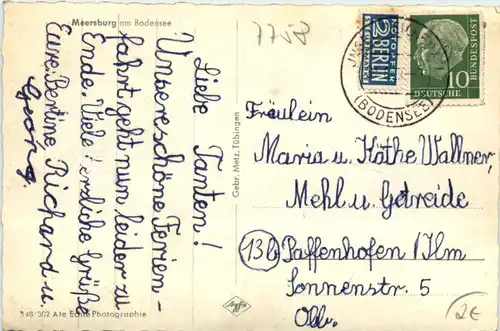 Meersburg am Bodensee
7758
Liebe Tanten!
Unsere schöne Ferien-
fahrt geht nun leider zu
Ende. Viele herrliche Grüße
Eure Bertine Richard u.
Georg.
148/302 Echte Photographie
Gebr. Metz, Tübingen
Agfa
NOTOPFER
2 BERLIN
STEUERMARKE
DEUTSCHE
BUNDESPOST
10
(BODENSEE)
Fräulein
Maria u. Käthe Wallner,
Mehl u. Getreide
(13b) Paffenhofen/Ilm
Sonnenstr. 5
Obb.
2€